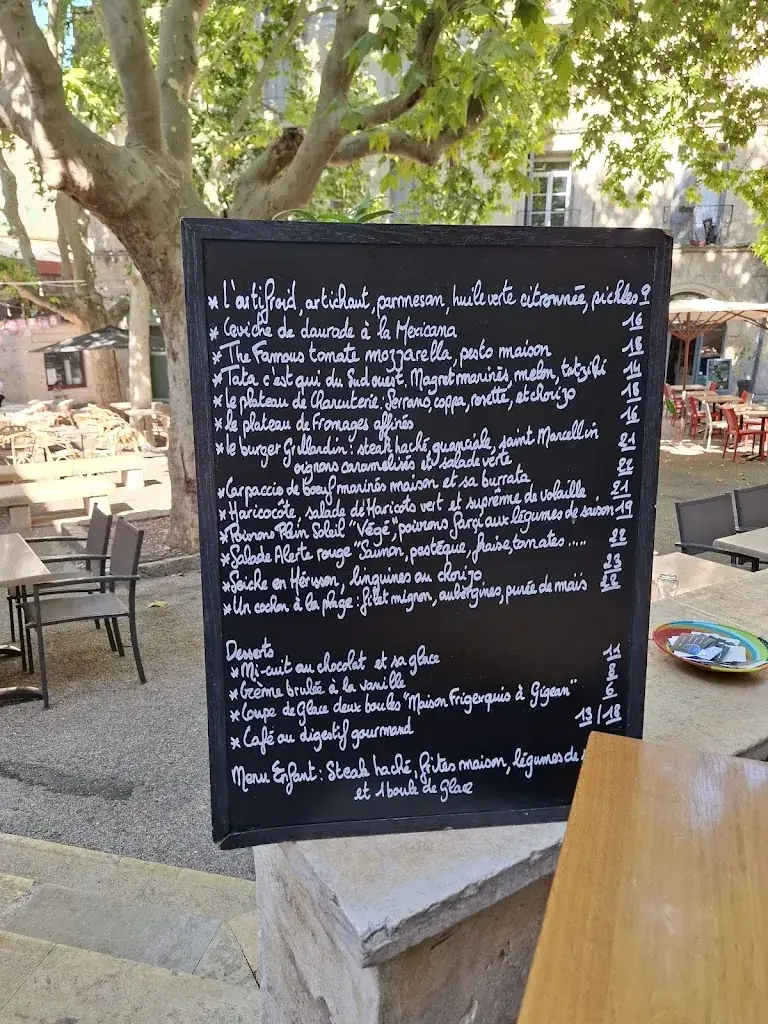 * L'artifroid, artichaut, parmesan, huile verte citronnée, pickles 9
* Ceviche de daurade à la Mexicana
* The Famous tomate mozzarella, pesto maison
* Tata c'est qui du Sud ouest, Magret marinés, melon, tatziki
* le plateau de Charcuterie: Serrano, coppa, rosette, et chorizo
* le plateau de Fromages affinés
* le burger Grillardin: steak haché, guanciale, saint Marcellin
oignons caramelisés et salade verte
* Carpaccio de bœuf marinés maison et sa burrata
* Haricocote, salade d'Haricots vert et suprême de volaille
* Poivrons Plein Soleil "Végé", poivrons farçi aux légumes de saison
* Salade Alerte rouge "Saumon, pastèque, fraise, tomates ....
* Seiche en Hérisson, linguines au chorizo
* Un cochon à la plage: filet mignon, aubergines, purée de maïs
Desserts
* Mi-cuit au chocolat et sa glace
* Crème brulée à la vanille
* Coupe de Glace deux boules "Maison Frigerquio à Gigean"
* Café ou digestif gourmand
Menu Enfant: Steak haché, frites maison, légumes de
et 1 boule de Glace